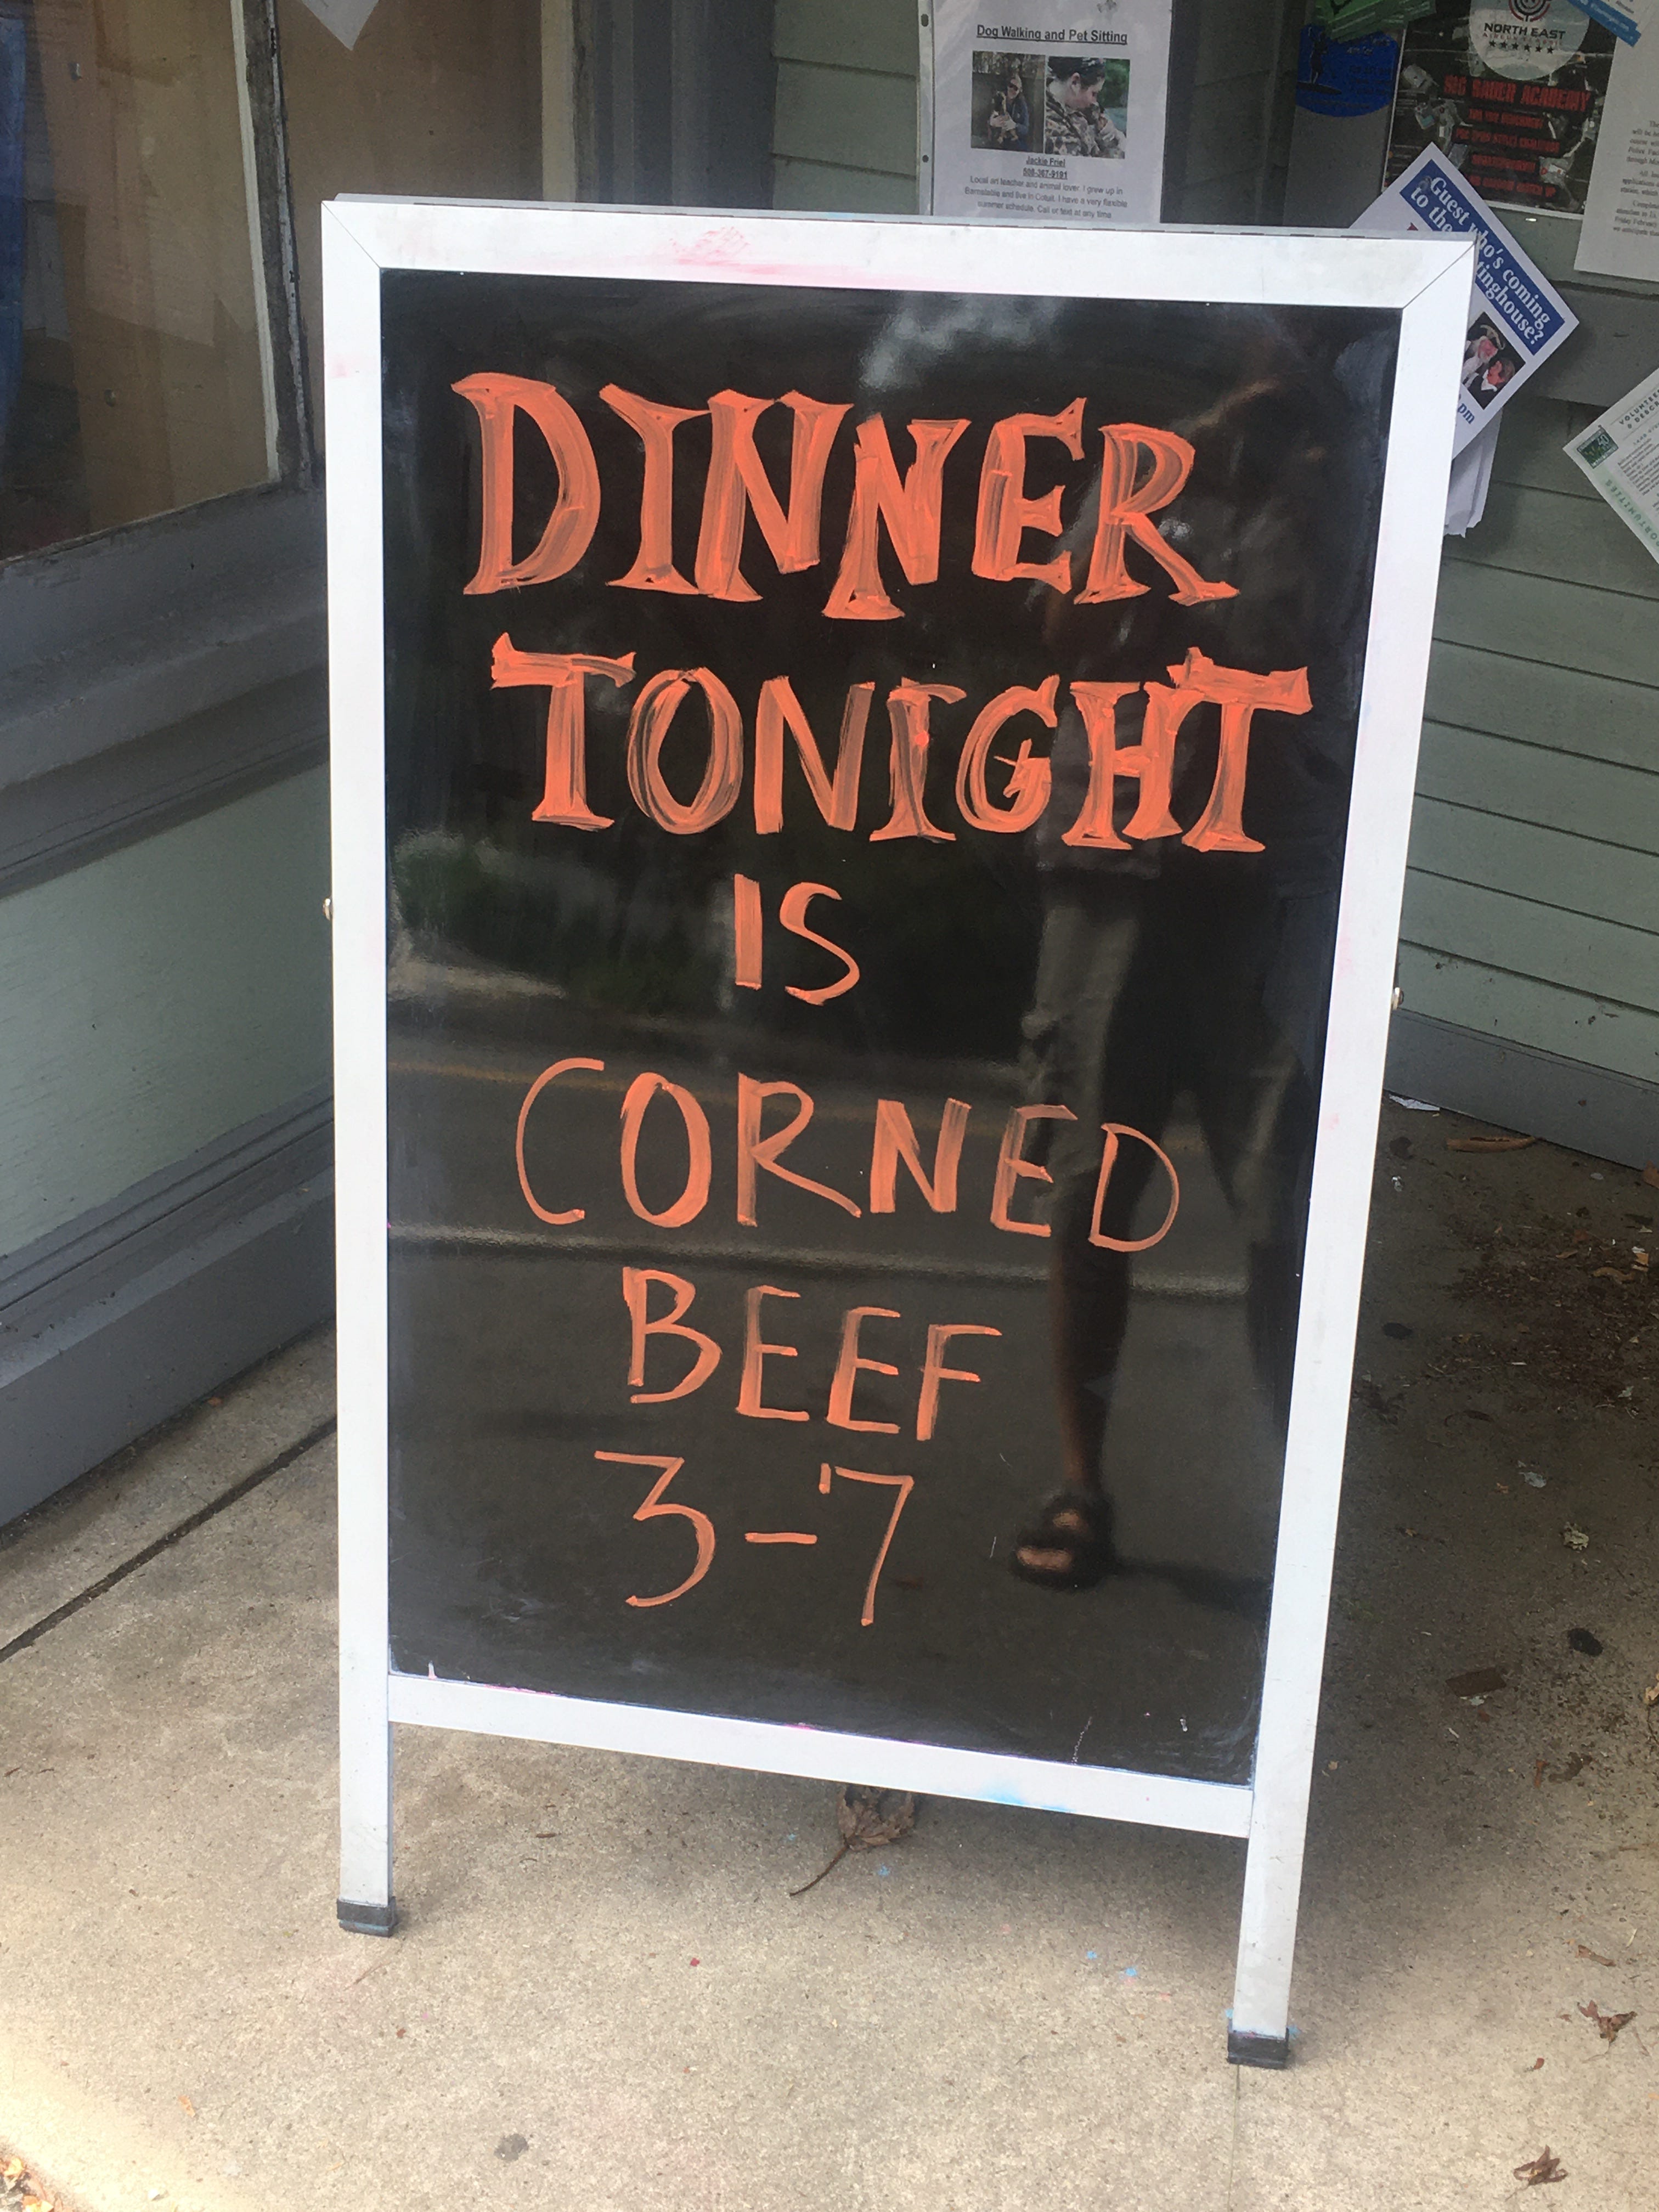 Dog Walking and Pet Sitting
Jackie Friel
508-367-9191
Local art teacher and animal lover. I grew up in
Barnstable and live in Cotuit. I have a very flexible
summer schedule. Call or text at any time
NORTH EAST
SIG SAUER ACADEMY
Guest who's coming
to the
tinghouse?
pm
DINNER
TONIGHT
IS
CORNED
BEEF
3-7